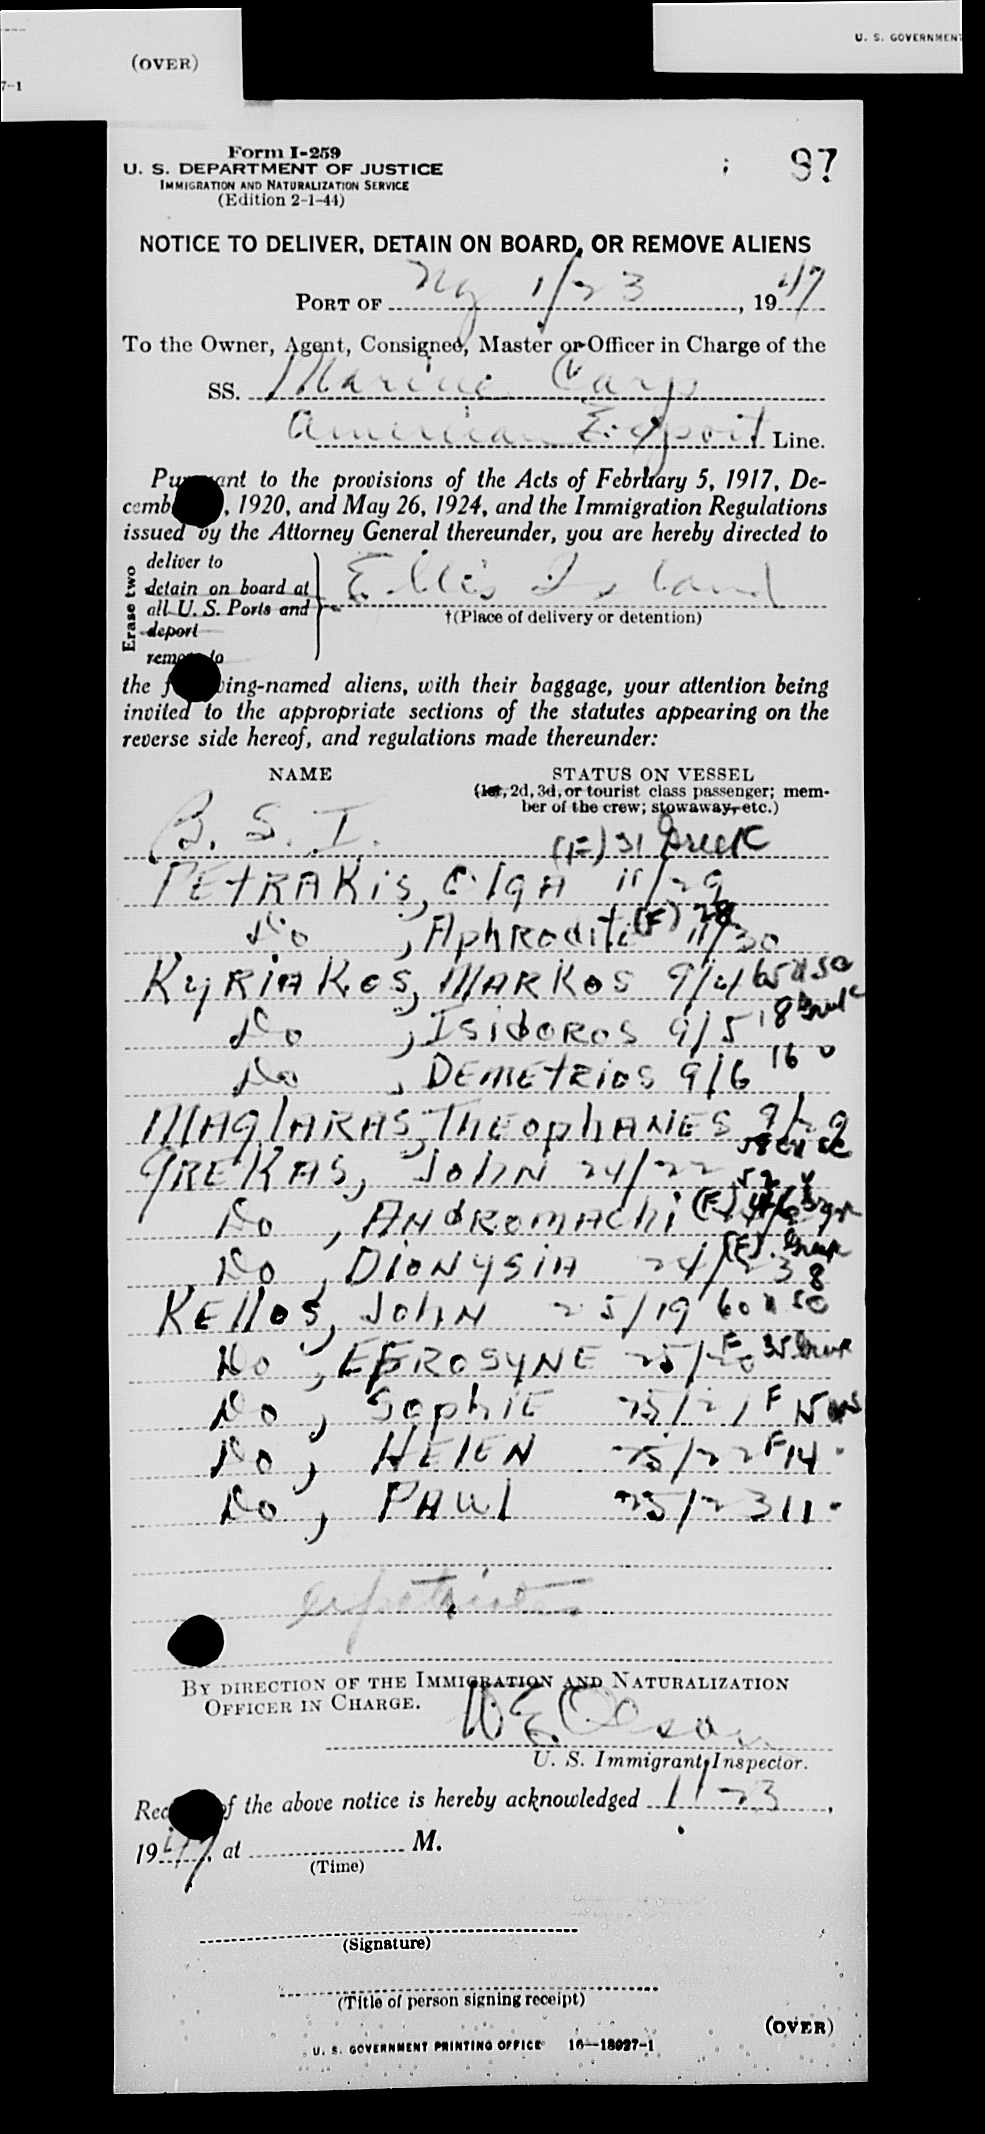 (OVER)
7-1
U. S. GOVERNMENT
Form I-259
U. S. DEPARTMENT OF JUSTICE
IMMIGRATION AND NATURALIZATION SERVICE
(Edition 2-1-44)
97
NOTICE TO DELIVER, DETAIN ON BOARD, OR REMOVE ALIENS
PORT OF NY 1/23, 1947
To the Owner, Agent, Consignee, Master or Officer in Charge of the
SS. Marine Carp
American Export Line.
Pursuant to the provisions of the Acts of February 5, 1917, De-
cemb , 1920, and May 26, 1924, and the Immigration Regulations
issued by the Attorney General thereunder, you are hereby directed to
Erase two
deliver to
detain on board at
all U. S. Ports and
deport
remove to
Ellis Island
†(Place of delivery or detention)
the following-named aliens, with their baggage, your attention being
invited to the appropriate sections of the statutes appearing on the
reverse side hereof, and regulations made thereunder:
NAME STATUS ON VESSEL
(1st, 2d, 3d, or tourist class passenger; mem-
ber of the crew; stowaway, etc.)
B. S. I. (F) 31 Greek
PETRAKIS, OlgA 11/29
Do , Aphrodite (F) 28 11/30
KyRIAKOS, MARKOS 9/4 65
Do , ISIDOROS 9/5 18 Greek
Do , DEMETRIOS 9/6 16
MAGlARAS, THEOphANES 9/29
58
GREKAS, JohN 24/22 52
Do , ANDROMAChi (F)
Do , DIONYSIA 24/23 (F) Greek 8
KEllOS, JohN 25/19 60
Do , EFROSYNE 25/20 F 35 Greek
Do , Sophie 25/21 F 15
Do , HElEN 25/22 F 14
Do , PAUl 25/23 11
BY DIRECTION OF THE IMMIGRATION AND NATURALIZATION
OFFICER IN CHARGE.
W E Olson
U. S. Immigrant Inspector.
Receipt of the above notice is hereby acknowledged 1/23,
1947, at M.
(Time)
(Signature)
(Title of person signing receipt)
(OVER)
U. S. GOVERNMENT PRINTING OFFICE 16—18027-1